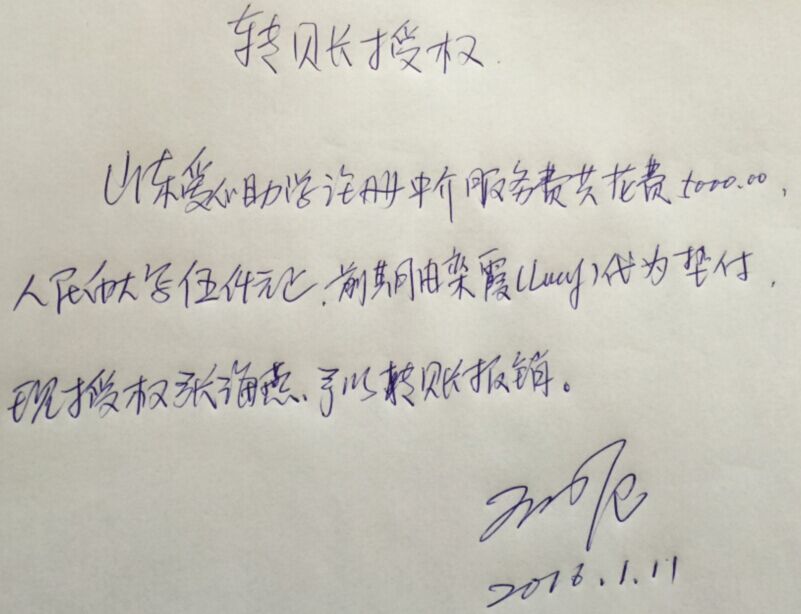 转账授权
山东爱心助学注册中介服务费共花费5000.00,
人民币大写伍仟元已,前期由栾霞(Lucy)代为垫付,
现授权张海燕予以转账报销。
2016.1.11